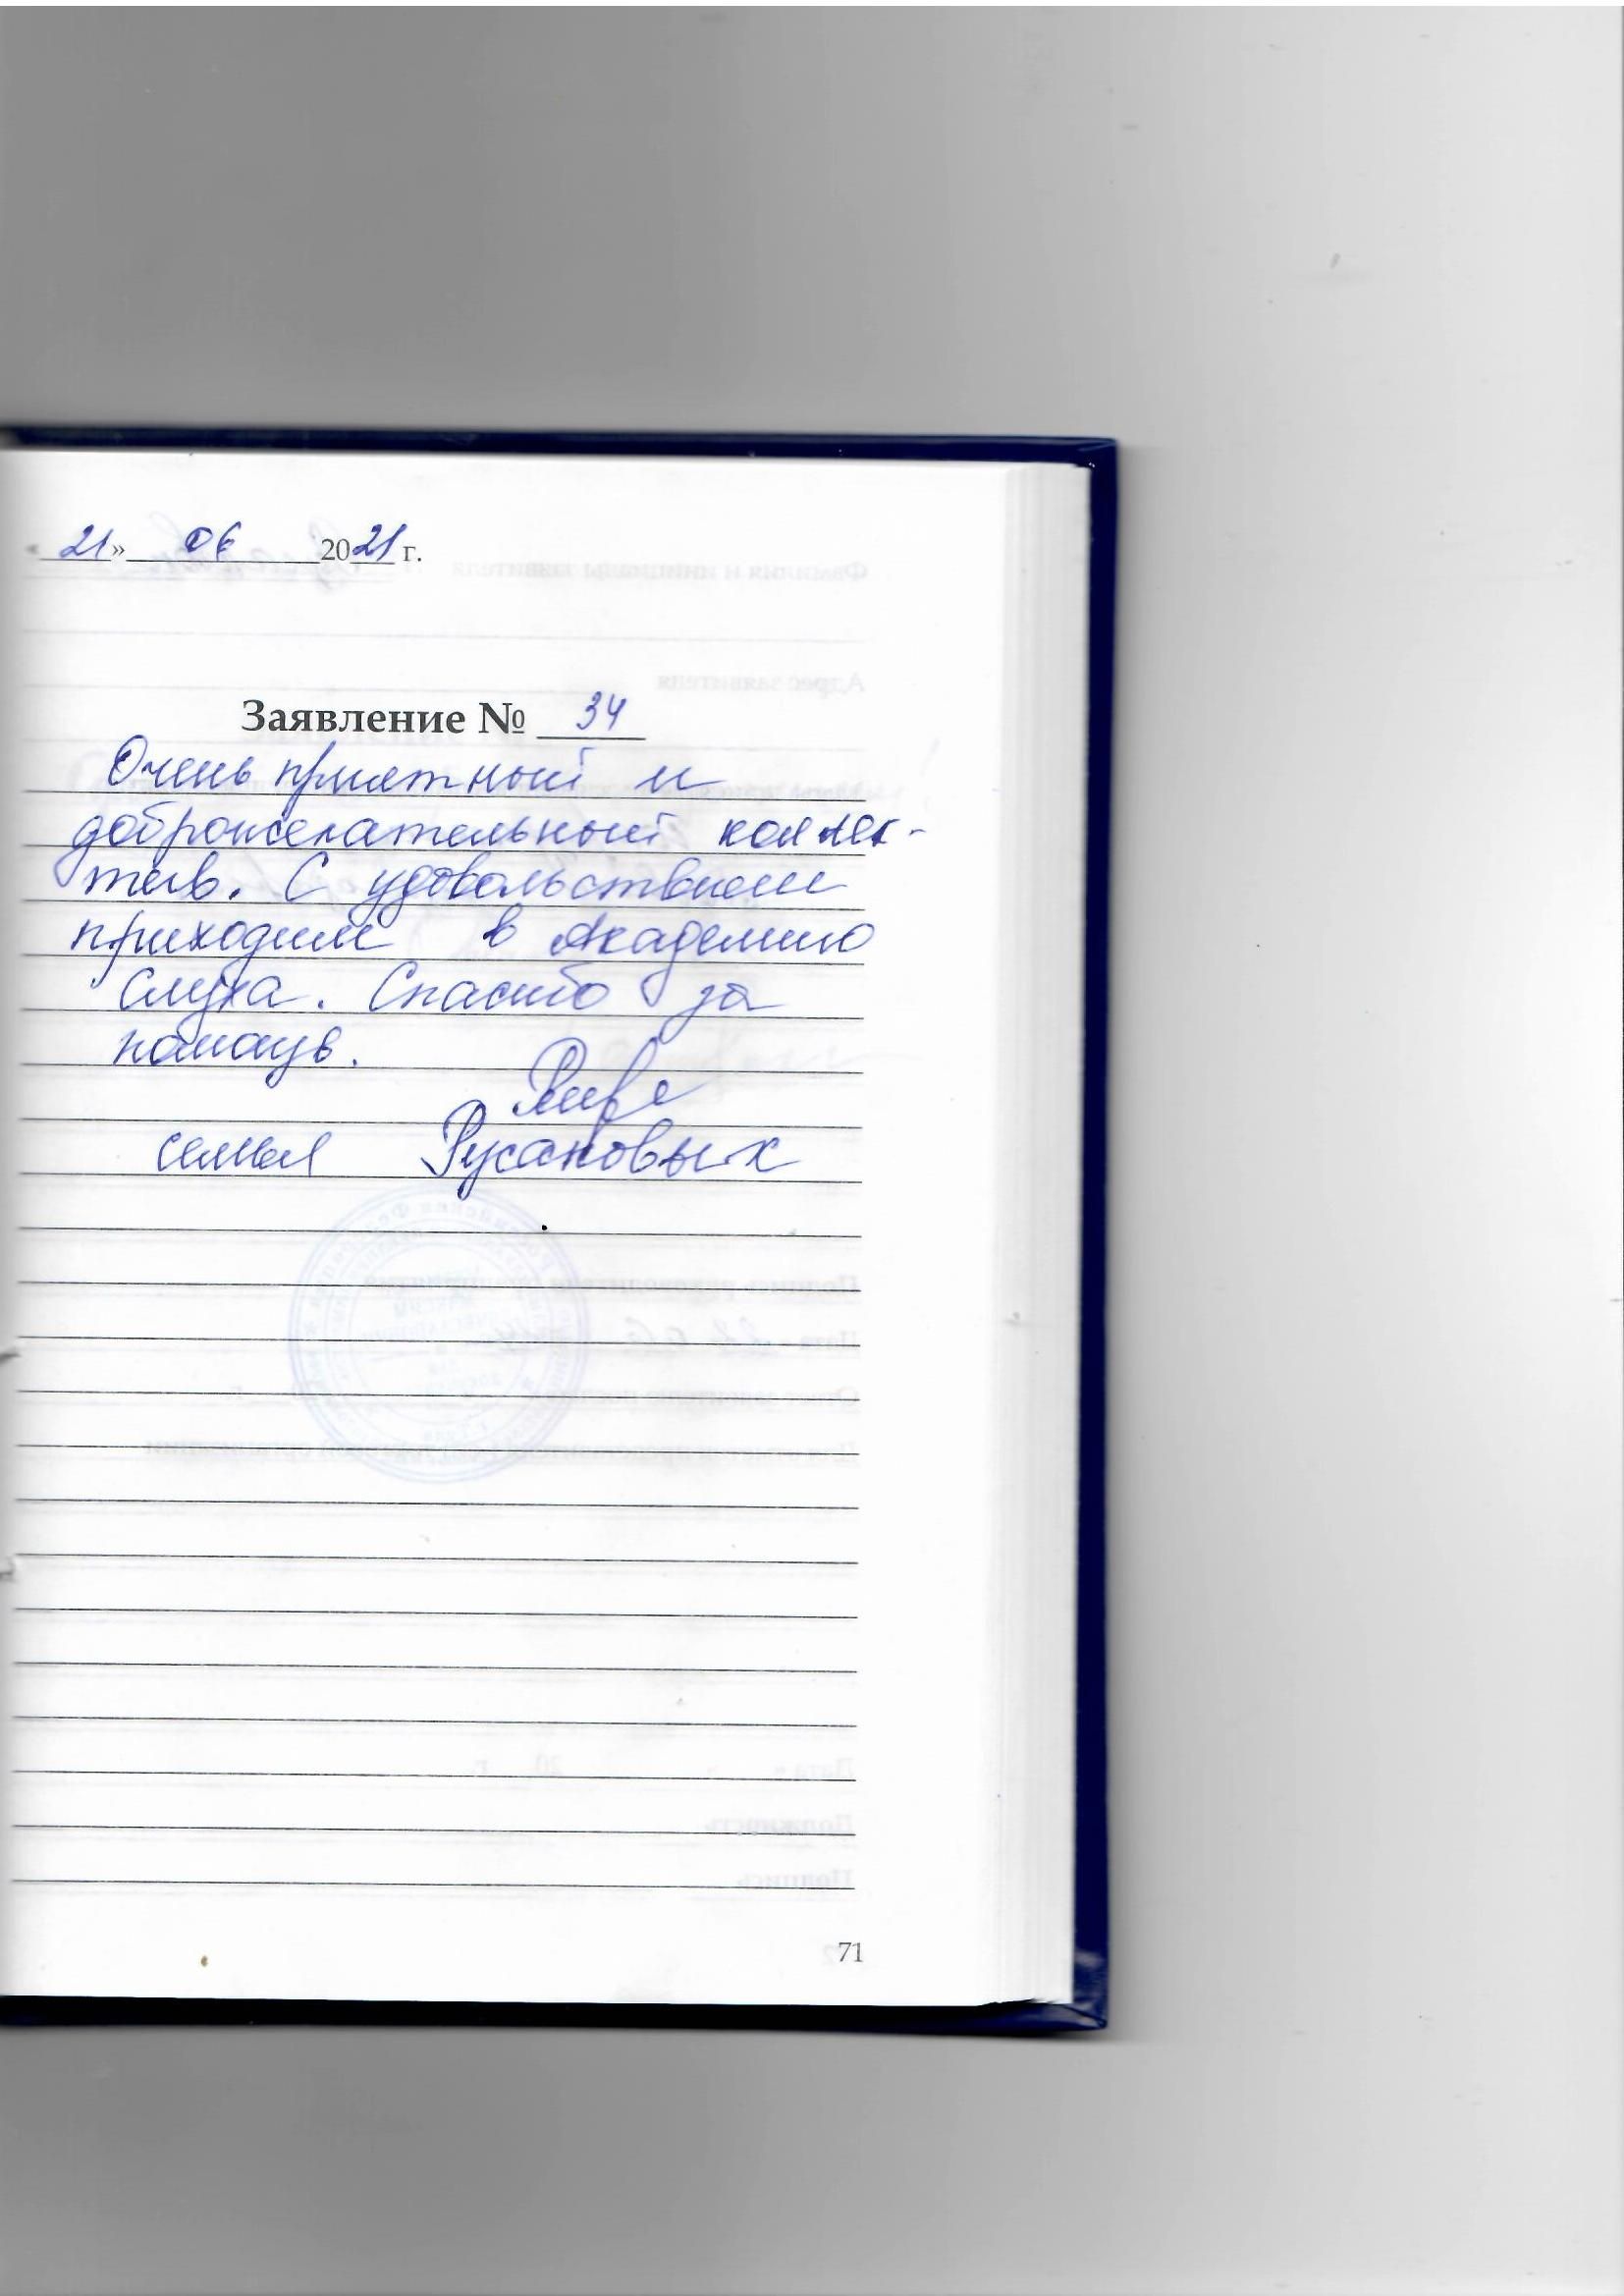 « 21 » 06 2021 г.
Заявление № 34
Очень приятный и
доброжелательный коллек-
тив. С удовольствием
приходим в Академию
Слуха. Спасибо за
помощь.
семья Русановых
71